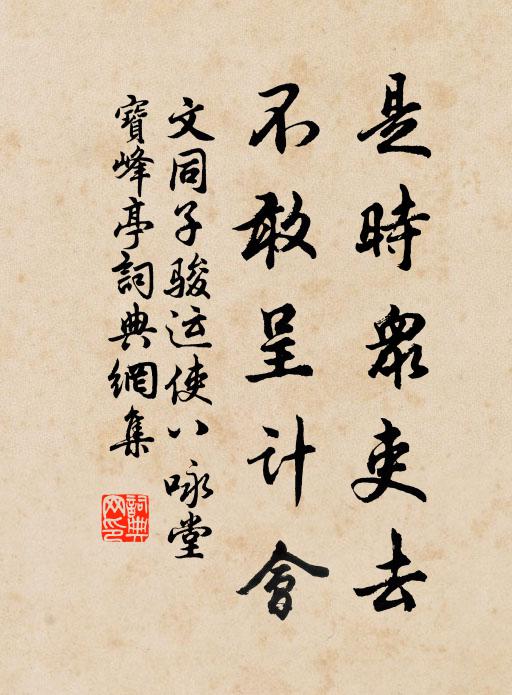 是時衆吏去
不敢呈計會
文同子駿运使八咏堂
寶峰亭詞典網集
詞典
网印